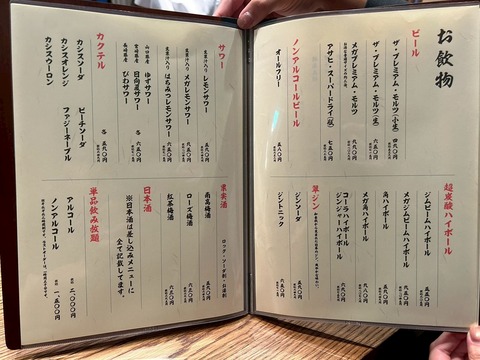 お飲物
ビール
ザ・プレミアム・モルツ(小生) 四九〇円
ザ・プレミアム・モルツ(生) 六五〇円
メガプレミアム・モルツ
アサヒ・スーパードライ(瓶) 七五〇円
ノンアルコールビール
オールフリー
超炭酸ハイボール
ジムビームハイボール 五九〇円
メガジムビームハイボール
角ハイボール
メガ角ハイボール 九八〇円
コーラハイボール
ジンジャーハイボール 六五〇円
翠ジン
ジンソーダ
ジントニック 六五〇円
サワー
生果汁入り レモンサワー 五九〇円
生果汁入り メガレモンサワー
生果汁入り はちみつレモンサワー 六五〇円
山口県産 ゆずサワー
宮崎県産 日向夏サワー
長崎県産 びわサワー 各 六五〇円
カクテル
カシスソーダ
カシスオレンジ
カシスウーロン
ピーチソーダ
ファジーネーブル 各 五九〇円
果実酒
ロック・ソーダ割・お湯割
南高梅酒 五九〇円
ローズ梅酒 六五〇円
紅茶梅酒 六五〇円
日本酒
※日本酒は差し込みメニューに
全て記載してます。
単品飲み放題
アルコール 二、〇〇〇円
ノンアルコール 一、五〇〇円